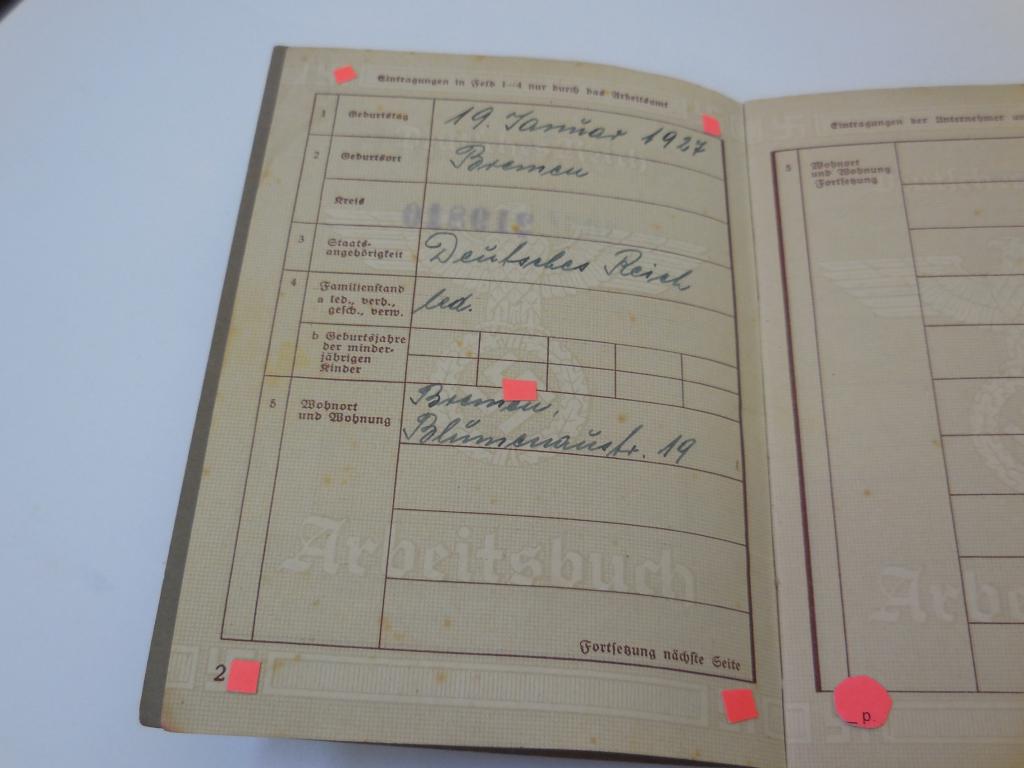 Eintragungen in Feld 1–4 nur durch das Arbeitsamt
1 Geburtstag 19. Januar 1927
2 Geburtsort Bremen
Kreis
3 Staats-
angehörigkeit Deutsches Reich
4 Familienstand
a led., verh.,
gesch., verw. led.
b Geburtsjahre
der minder-
jährigen
Kinder
5 Wohnort
und Wohnung
Bremen,
Blumenaustr. 19
Arbeitsbuch
Fortsetzung nächste Seite
2
Eintragungen der Unternehmer
5 Wohnort
und Wohnung
Fortsetzung
p.